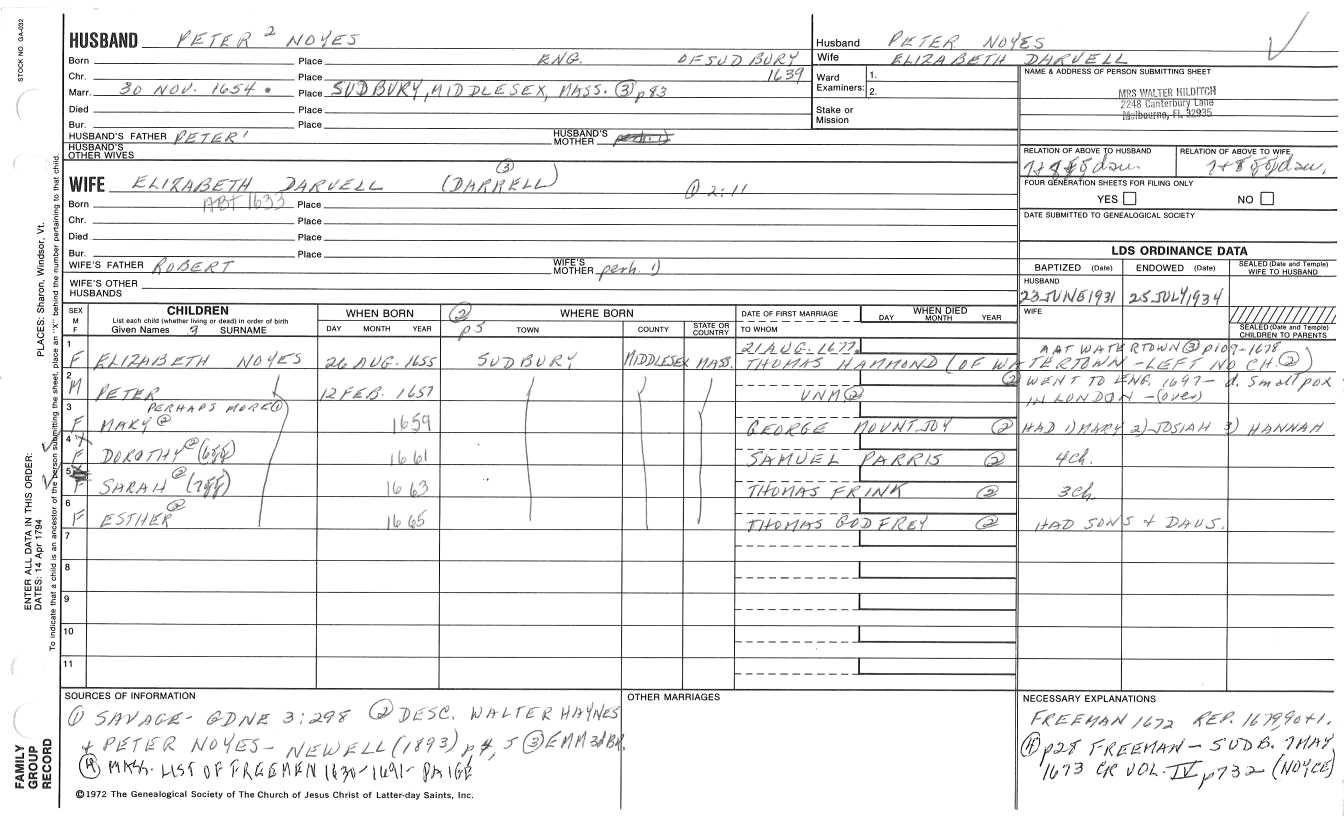 STOCK NO. GA-032
HUSBAND PETER 2 NOYES
Born Place ENG. OF SUDBURY
Chr. Place 1639
Marr. 30 NOV. 1654 Place SUDBURY, MIDDLESEX, MASS. ③ p83
Died Place
Bur. Place
HUSBAND'S FATHER PETER 1 HUSBAND'S MOTHER
HUSBAND'S OTHER WIVES
Husband PETER NOYES
Wife ELIZABETH DARVELL
Ward Examiners: 1.
2.
Stake or Mission
NAME & ADDRESS OF PERSON SUBMITTING SHEET
MRS WALTER HILDITCH
2248 Canterbury Lane
Melbourne, FL 32935
RELATION OF ABOVE TO HUSBAND RELATION OF ABOVE TO WIFE
7+8 gg dau. 7+8 gg dau.
FOUR GENERATION SHEETS FOR FILING ONLY
YES NO
DATE SUBMITTED TO GENEALOGICAL SOCIETY
WIFE ELIZABETH DARVELL (DARRELL) ③ ① 2:11
Born ABT 1633 Place
Chr. Place
Died Place
Bur. Place
WIFE'S FATHER ROBERT WIFE'S MOTHER perh. 1)
WIFE'S OTHER HUSBANDS
LDS ORDINANCE DATA
BAPTIZED (Date) ENDOWED (Date) SEALED (Date and Temple) WIFE TO HUSBAND
HUSBAND
23 JUNE 1931 25 JULY 1934
WIFE
SEALED (Date and Temple) CHILDREN TO PARENTS
SEX M F CHILDREN WHEN BORN ② p5 WHERE BORN DATE OF FIRST MARRIAGE WHEN DIED
List each child (whether living or dead) in order of birth
Given Names SURNAME DAY MONTH YEAR TOWN COUNTY STATE OR COUNTRY TO WHOM DAY MONTH YEAR
1 21 AUG. 1677 AAT WATERTOWN ③ p107-1678
F ELIZABETH NOYES 26 AUG. 1655 SUDBURY MIDDLESEX MASS. THOMAS HAMMOND (OF WATERTOWN - LEFT NO CH. ②)
2 ② WENT TO ENG. 1697 - d. Small pox
M PETER 12 FEB. 1657 UNM ② IN LONDON - (over)
3 PERHAPS MORE ①
F MARY ② 1659 GEORGE MOUNTJOY ② HAD 1) MARY 2) JOSIAH 3) HANNAH
4 X
F DOROTHY ② (6gg) 1661 SAMUEL PARRIS ② 4 Ch.
5 X
F SARAH ② (7gg) 1663 THOMAS FRINK ② 3 Ch
6
F ESTHER ② 1665 THOMAS GODFREY ② HAD SONS + DAUS.
7
8
9
10
11
PLACES: Sharon, Windsor, Vt.
ENTER ALL DATA IN THIS ORDER:
DATES: 14 Apr 1794
To indicate that a child is an ancestor of the person submitting the sheet, place an "X" behind the number pertaining to that child.
FAMILY GROUP RECORD
SOURCES OF INFORMATION
① SAVAGE - GDNE 3:298 ② DESC. WALTER HAYNES
+ PETER NOYES - NEWELL (1893) p 4, 5 ③ EMM 3d BR.
④ MASS. LIST OF FREEMEN 1630-1691 - PAIGE
©1972 The Genealogical Society of The Church of Jesus Christ of Latter-day Saints, Inc.
OTHER MARRIAGES
NECESSARY EXPLANATIONS
FREEMAN 1672 REP. 1679, 90 + 1.
④ p28 FREEMAN - SUDB. 7 MAY
1673 CR VOL. IV p732 (NOYCE)